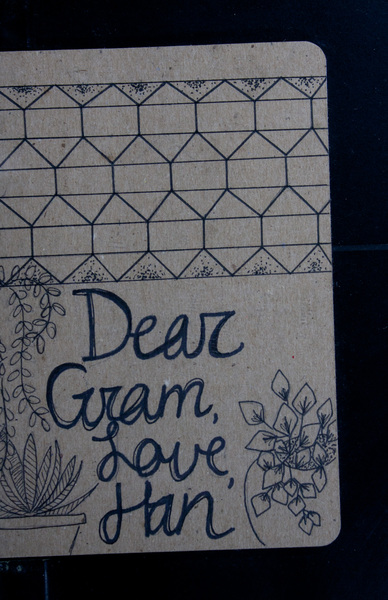 Dear
Gram,
Love,
Han